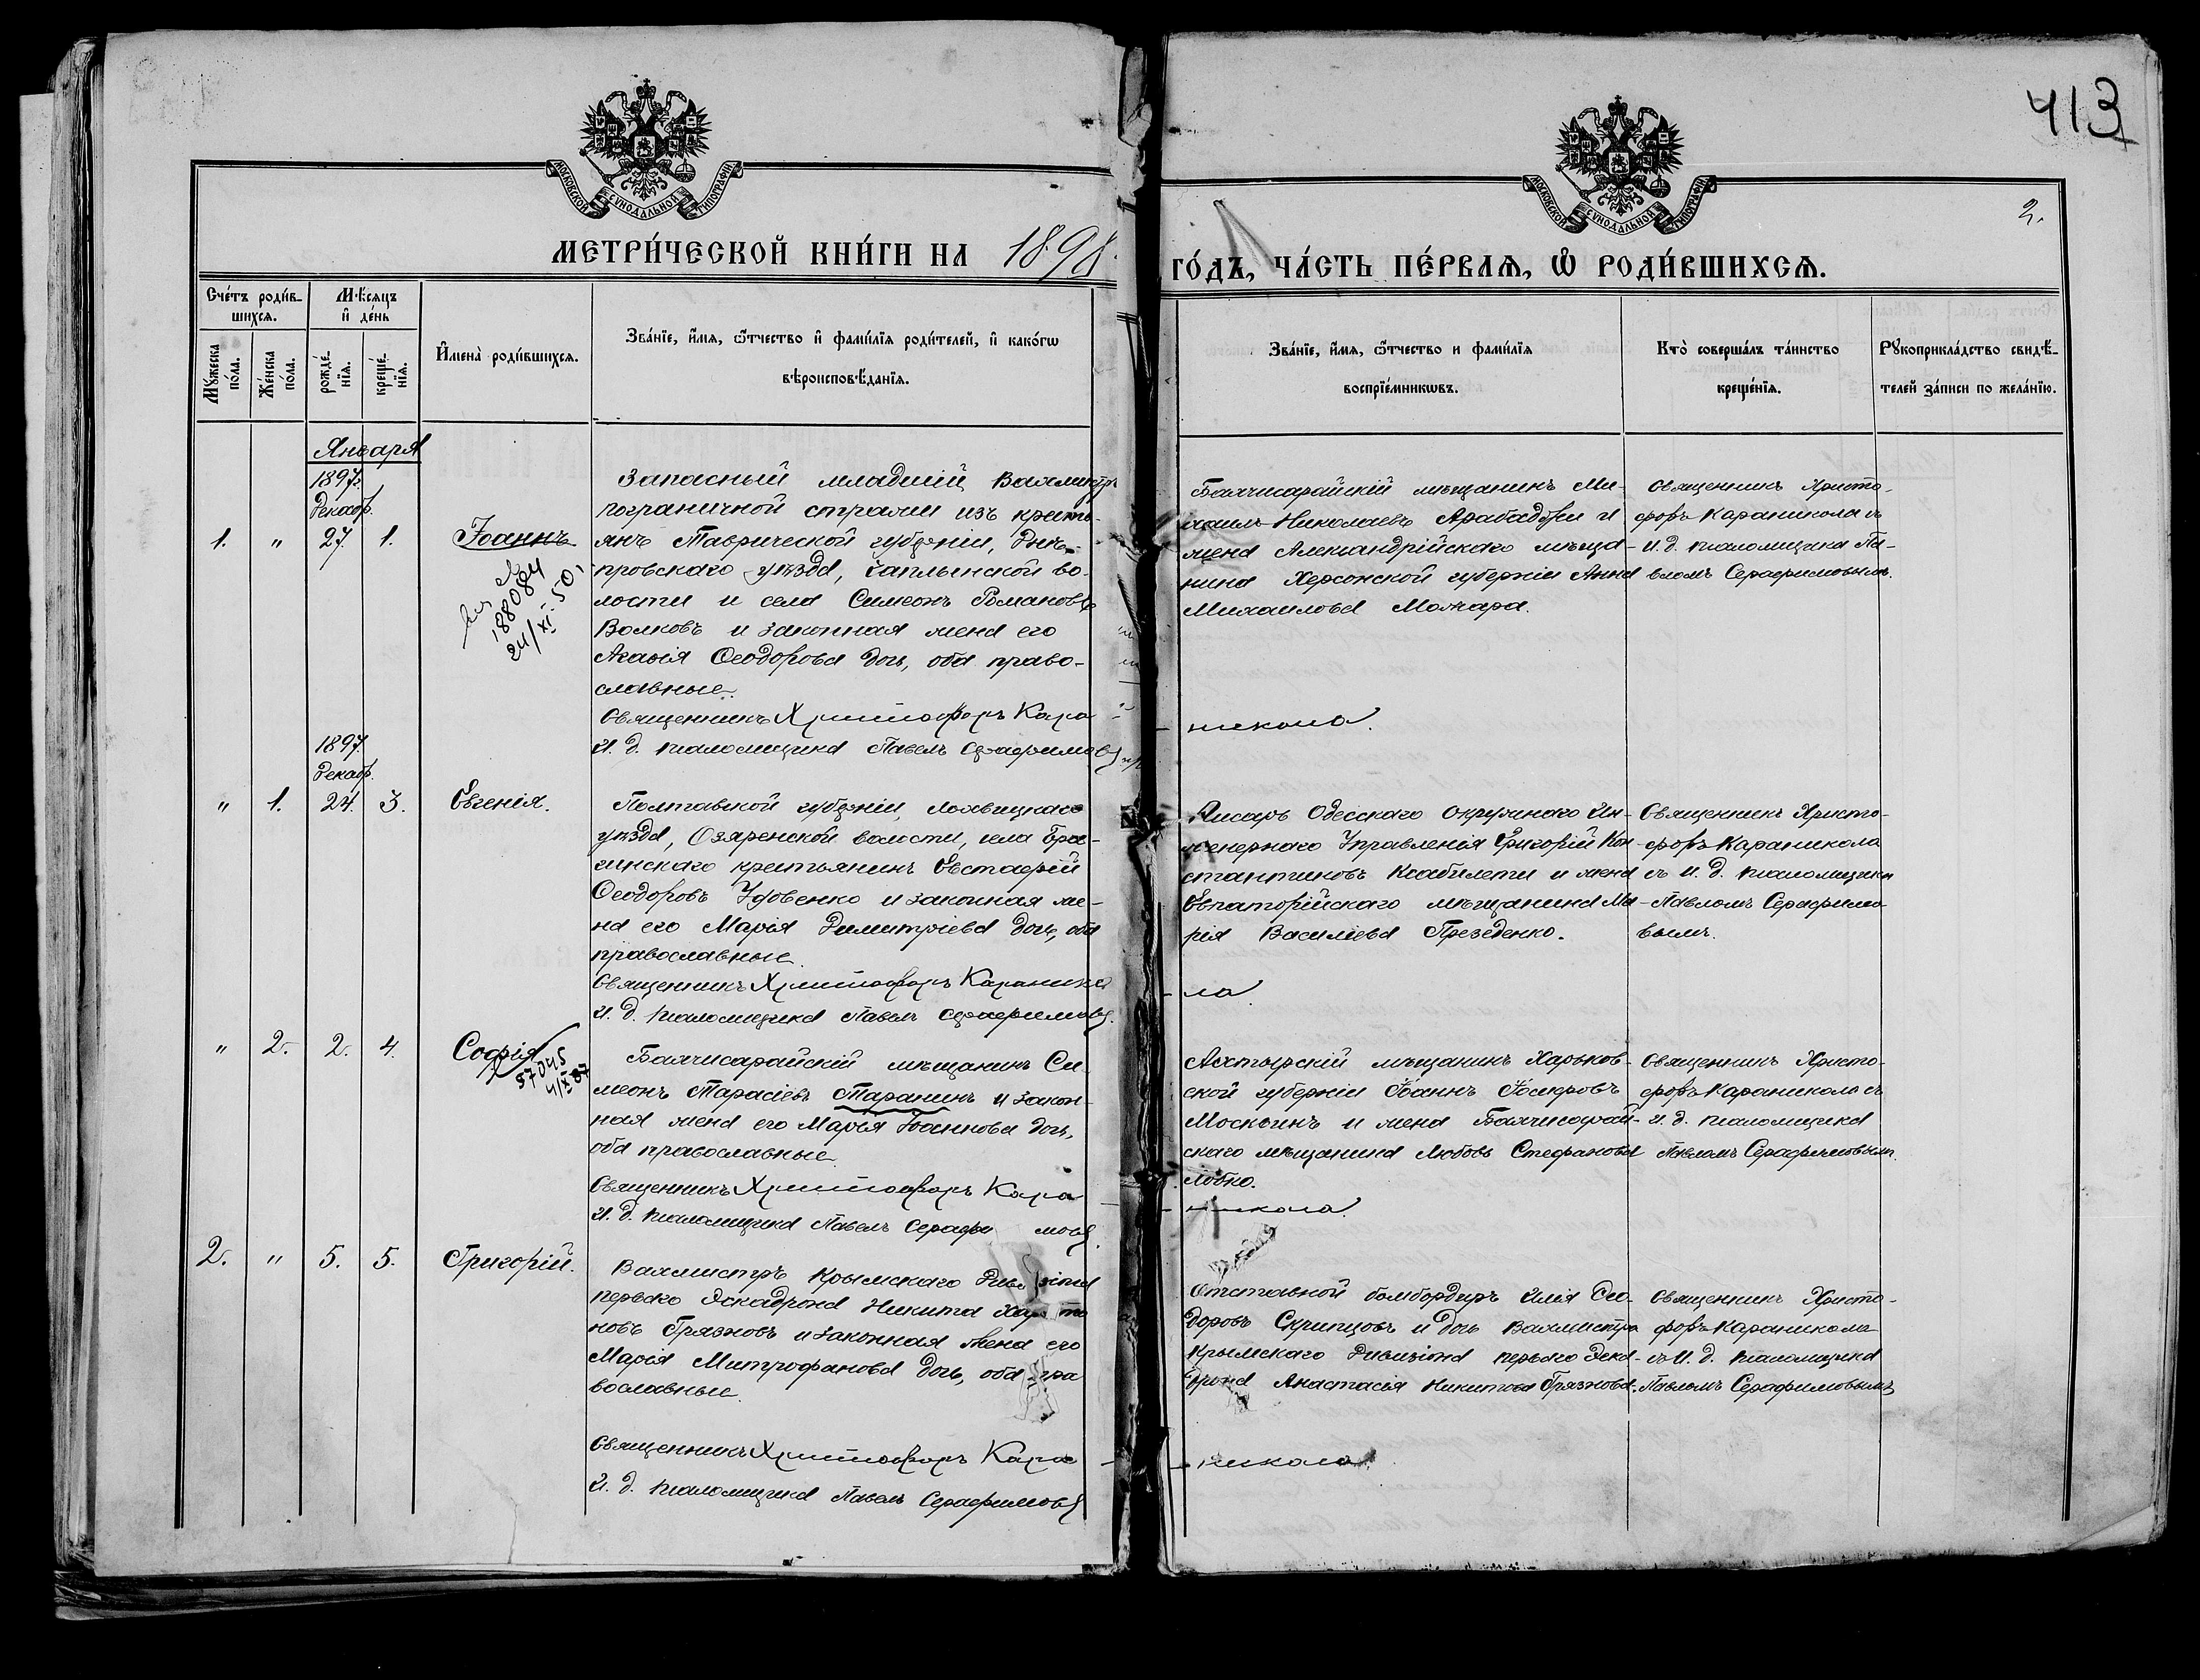 413
МОСКОВСКОЙ СУНОДАЛЬНОЙ ТИПОГРАФІИ
МОСКОВСКОЙ СУНОДАЛЬНОЙ ТИПОГРАФІИ
2.
МЕТРИ́ЧЕСКОЙ КНИ́ГИ НА 1898
ГО́ДЪ, ЧА́СТЬ ПЕ́РВАѦ, Ѡ РОДИ́ВШИХСѦ.
Сче́тъ роди́в-
шихсѧ.
Мѣ́сѧцъ
и де́нь
Мꙋжеска по́ла.
Же́нска по́ла.
рожде́нїѧ.
креще́нїѧ.
Имена̀ роди́вшихсѧ.
Зва́нїе, и́мѧ, ѻ҆́тчество и фами́лїѧ роди́телей, и како́гѡ
вѣроисповѣ́данїѧ.
Зва́нїе, и́мѧ, ѻ҆́тчество и фами́лїѧ
воспрїе́мникѡвъ.
Кто̀ соверша́лъ та́инство
креще́нїѧ.
Рꙋкоприкла́дство свидѣ́-
телей за́писи по жела́нїю.
Января
1897
Декабр.
1. " 27. 1. Іоаннъ
188084
24/XI 50
Запасный младшій Вахмистръ
пограничной стражи изъ кресть-
янъ Таврической губерніи, Днѣ-
провскаго уѣзда, Чаплынской во-
лости и села Симеонъ Романовъ
Волковъ и законная жена его
Агаѳія Ѳеодорова дочь, оба право-
славные.
Священникъ Христофоръ Кара
И. д. псаломщика Павелъ Серафимовъ
Бахчисарайскій мѣщанинъ Ми-
хаилъ Николаевъ Арабаджи и
жена Александрійскаго мѣща-
нина Херсонской губерніи Анна
Михаилова Можара.
никола.
Священникъ Христо-
форъ Караникола съ
И. д. псаломщика Па-
вломъ Серафимовымъ.
1897
Декабр.
" 1. 24. 3. Евгенія.
Полтавской губерніи, Лохвицкаго
уѣзда, Озяренской волости, села Бра-
гинскаго крестьянинъ Евстафій
Ѳеодоровъ Удовенко и законная же-
на его Марія Димитріева дочь, оба
православные.
Священникъ Христофоръ Каранико
И. д. псаломщика Павелъ Серафимовъ.
Писарь Одесскаго Окружнаго Ин-
женернаго Управленія Григорій Кон-
стантиновъ Ксабилети и жена
Евпаторійскаго мѣщанина Ма-
рія Василіева Презеденко.
ла.
Священникъ Христо-
форъ Караникола
съ И. д. псаломщика
Павломъ Серафимо-
вымъ.
" 2. 2. 4. Софія
57045
4/IX 87
Бахчисарайскій мѣщанинъ Си-
меонъ Тарасіевъ Таранинъ и закон-
ная жена его Марія Іоаннова дочь,
оба православные.
Священникъ Христофоръ Кара
И. д. псаломщика Павелъ Серафимовъ.
Ахтырскій мѣщанинъ Харьков-
ской губерніи Іоаннъ Іосифовъ
Москвинъ и жена Бахчисарай-
скаго мѣщанина Любовь Стефанова
Лобко.
никола.
Священникъ Христо-
форъ Караникола съ
И. д. псаломщика
Павломъ Серафимовымъ.
2. " 5. 5. Григорій.
Вахмистръ Крымскаго Дивизіона
перваго Эскадрона Никита Харито
новъ Грязновъ и законная жена его
Марія Митрофанова дочь, оба пра
вославные.
Священникъ Христофоръ Кара
И. д. псаломщика Павелъ Серафимовъ
Отставной бомбордиръ Илія Ѳео-
доровъ Скрипцовъ и дочь Вахмистра
Крымскаго Дивизіона перваго Эска-
дрона Анастасія Никитова Грязнова.
никола.
Священникъ Христо-
форъ Караникола
съ И. д. псаломщика
Павломъ Серафимовымъ